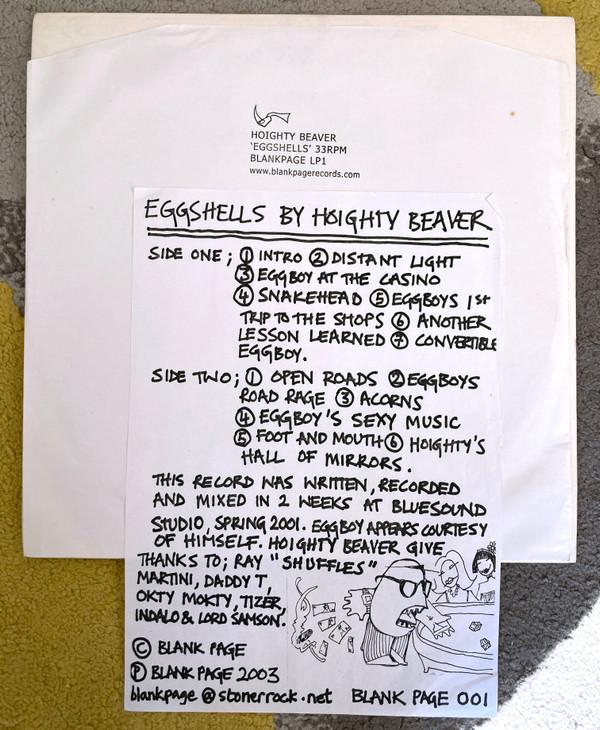 HOIGHTY BEAVER
'EGGSHELLS' 33RPM
BLANKPAGE LP1
www.blankpagerecords.com
EGGSHELLS BY HOIGHTY BEAVER
SIDE ONE; ① INTRO ② DISTANT LIGHT
③ EGGBOY AT THE CASINO
④ SNAKEHEAD ⑤ EGGBOYS 1ST
TRIP TO THE SHOPS ⑥ ANOTHER
LESSON LEARNED ⑦ CONVERTIBLE
EGGBOY.
SIDE TWO; ① OPEN ROADS ② EGGBOYS
ROAD RAGE ③ ACORNS
④ EGGBOY'S SEXY MUSIC
⑤ FOOT AND MOUTH ⑥ HOIGHTY'S
HALL OF MIRRORS.
THIS RECORD WAS WRITTEN, RECORDED
AND MIXED IN 2 WEEKS AT BLUESOUND
STUDIO, SPRING 2001. EGGBOY APPEARS COURTESY
OF HIMSELF. HOIGHTY BEAVER GIVE
THANKS TO; RAY "SHUFFLES"
MARTINI, DADDY T,
OKTY MOKTY, TIZER,
INDALO & LORD SAMSON.
© BLANK PAGE
℗ BLANK PAGE 2003
blankpage@stonerrock.net BLANK PAGE 001